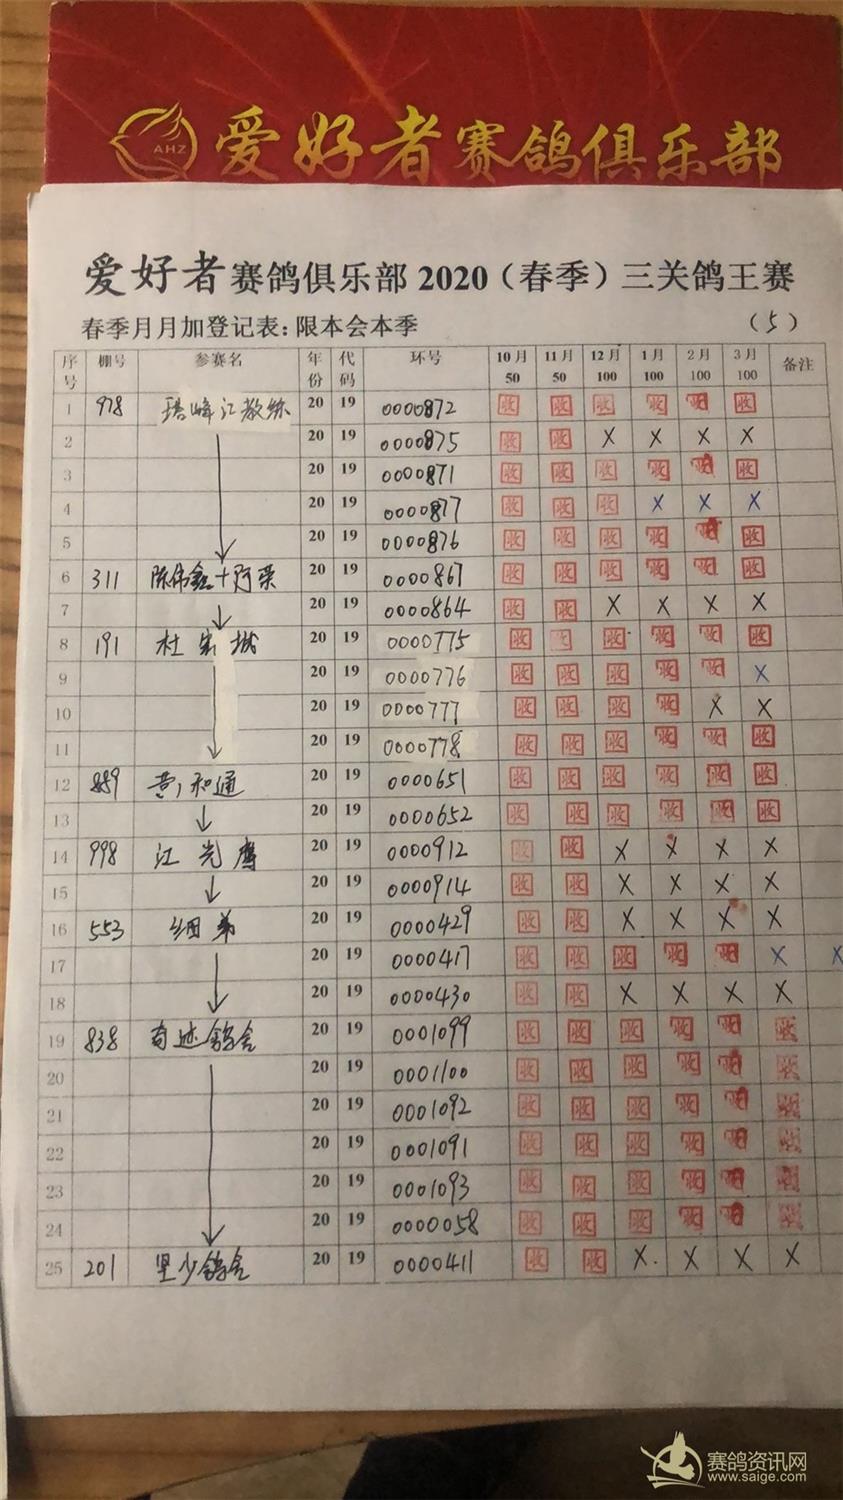 AHZ 爱好者赛鸽俱乐部
爱好者赛鸽俱乐部2020（春季）三关鸽王赛
春季月月加登记表：限本会本季 （5）
序号 棚号 参赛名 年份 代码 环号 10月50 11月50 12月100 1月100 2月100 3月100 备注
1 978 江教练 20 19 0000872 收 收 收 收 收 收
2 20 19 0000875 收 收 X X X X
3 20 19 0000871 收 收 收 收 收 收
4 20 19 0000877 收 收 收 X X X
5 20 19 0000876 收 收 收 收 收 收
6 311 陈伟鑫十阿荣 20 19 0000867 收 收 收 收 收 收
7 20 19 0000864 收 收 X X X X
8 191 杜 城 20 19 0000775 收 收 收 收 收 收
9 20 19 0000776 收 收 收 收 收 X
10 20 19 0000777 收 收 收 收 X X
11 20 19 0000778 收 收 收 收 收 收
12 889 黄和通 20 19 0000651 收 收 收 收 收 收
13 20 19 0000652 收 收 收 收 收 收
14 998 江先鹰 20 19 0000912 收 收 X X X X
15 20 19 0000914 收 收 X X X X
16 553 细弟 20 19 0000429 收 收 X X X X
17 20 19 0000417 收 收 收 收 收 X X
18 20 19 0000430 收 收 X X X X
19 838 奇迹鸽舍 20 19 0001099 收 收 收 收 收 收
20 20 19 0001100 收 收 收 收 收 收
21 20 19 0001092 收 收 收 收 收 收
22 20 19 0001091 收 收 收 收 收 收
23 20 19 0001093 收 收 收 收 收 收
24 20 19 0000058 收 收 收 收 收 收
25 201 坚少鸽舍 20 19 0000411 收 收 X X X X
赛鸽资讯网
www.saige.com